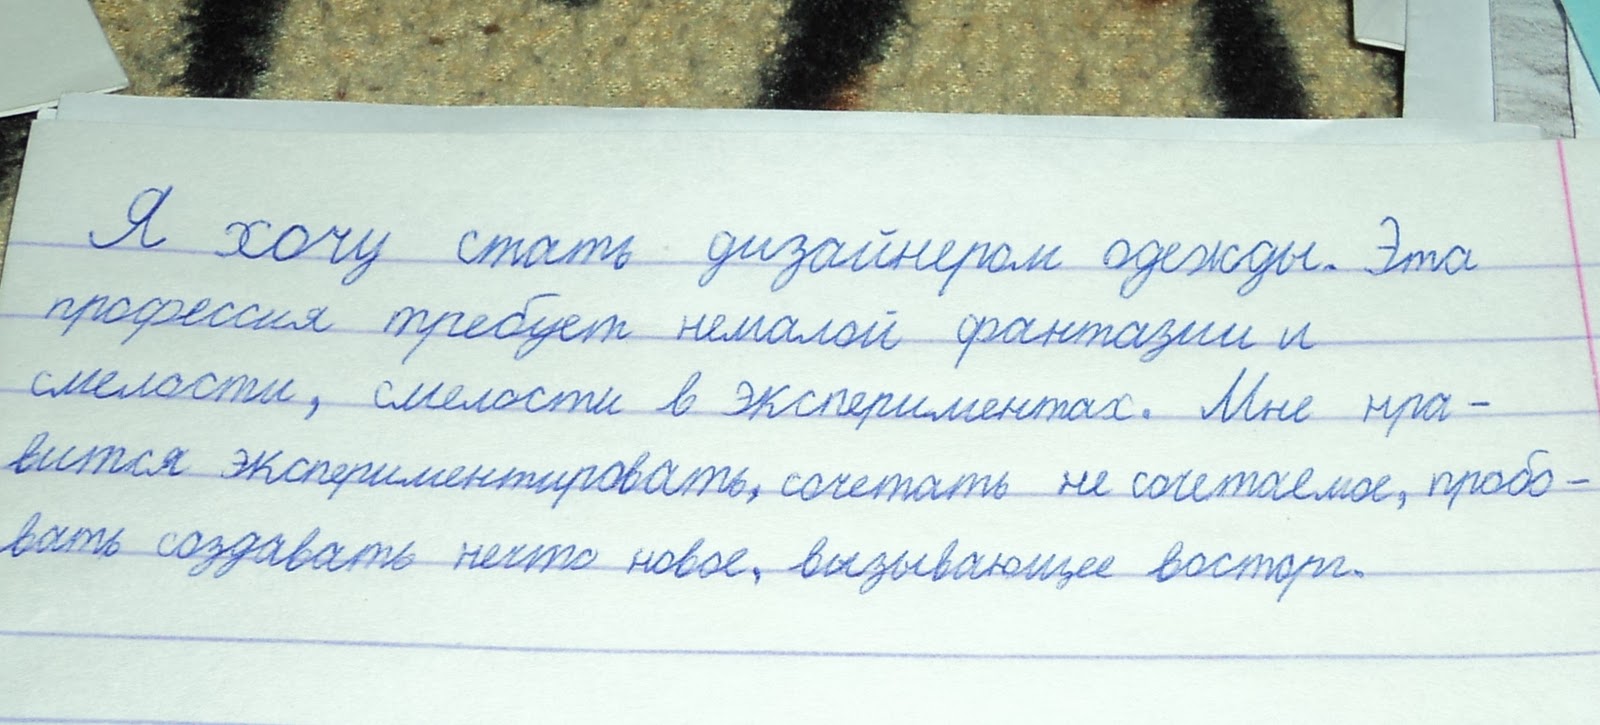 Я хочу стать дизайнером одежды. Эта
профессия требует немалой фантазии и
смелости, смелости в экспериментах. Мне нра-
вится экспериментировать, сочетать не сочетаемое, пробо-
вать создавать нечто новое, вызывающее восторг.